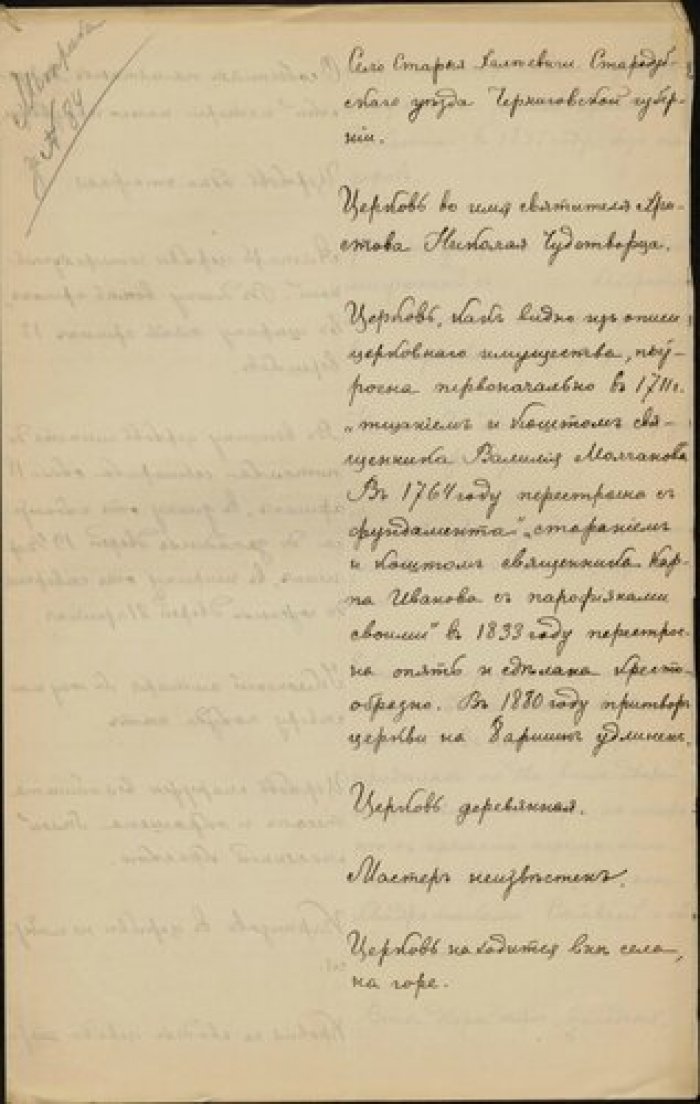 № 84
Село Старыя Халѣевичи Стародуб-
скаго уѣзда Черниговской губер-
ніи.
Церковь во имя святителя Хри-
стова Николая Чудотворца.
Церковь, какъ видно изъ описи
церковнаго имущества, „пос-
роена первоначально въ 1711 г.
„тщаніемъ и коштомъ свя-
щенника Василія Молчанова
Въ 1764 году перестроена съ
фундамента" „стараніемъ
и коштомъ священника Кар-
па Иванова съ парафіянами
своими" въ 1833 году перестрое-
на опять и сдѣлана кресто-
образно. Въ 1880 году притворъ
церкви на 8 аршинъ удлиненъ.
Церковь деревянная.
Мастеръ неизвѣстенъ.
Церковь находится внѣ села,
на горе.